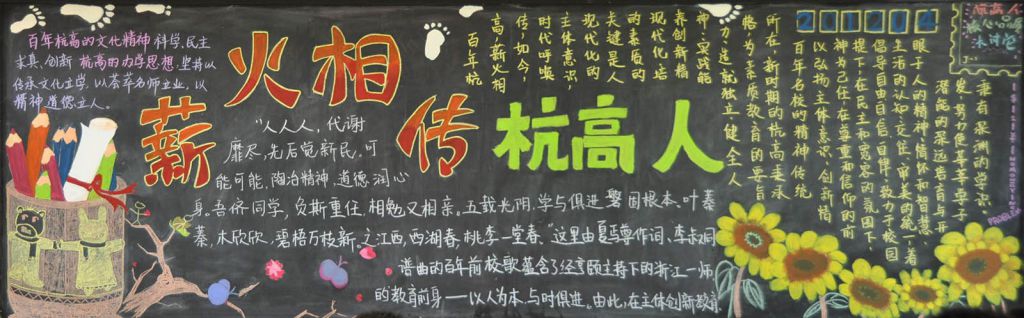 百年杭高的文化精神科学,民主
求真,创新 杭高的办学思想,坚持以
传承文化立学,以荟萃名师立业,以
精神道德立人。
薪火相传
杭高人
"人人人,代谢
靡尽,先后觉新民。可
能可能,陶冶精神,道德润心
身。吾侪同学,负斯重任,相勉又相亲。五载光阴,学与俱进,磐固根本,叶蓁
蓁,木欣欣,碧梧万枝新。之江西,西湖春,桃李一堂春。"这里由夏丏尊作词、李叔同
谱曲的百年前校歌蕴含了经亨颐主持下的浙江一师
的教育前身——以人为本、与时俱进。由此,在主体创新教育
百年杭
高,薪火相
传,如今,
时代呼唤
主体意识,
现代化的
关键是人
的素质的
现代化,培
养创新精
神,实践能
力,造就独立健全人
格,为素质教育的要旨
所在,新时期的杭高秉承
百年名校的精神,传统
以弘扬主体意识,创新精
神为己任,在尊重和信仰的前
提下,在民主和宽容的氛围下
倡导自由自信,自律,致力于校园
生活的认知,交往,审美的统一,着
眼于人的精神情怀和智慧
潜能的深远培育与开
发,努力使莘莘学子
兼有渊渊的学识
201204